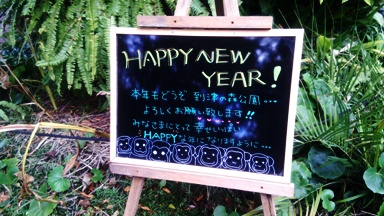 HAPPY NEW
YEAR!
本年もどうぞ 到津の森公園…
よろしくお願い致します!!
みなさまにとって 幸せいっぱい
HAPPYな年になりますように…